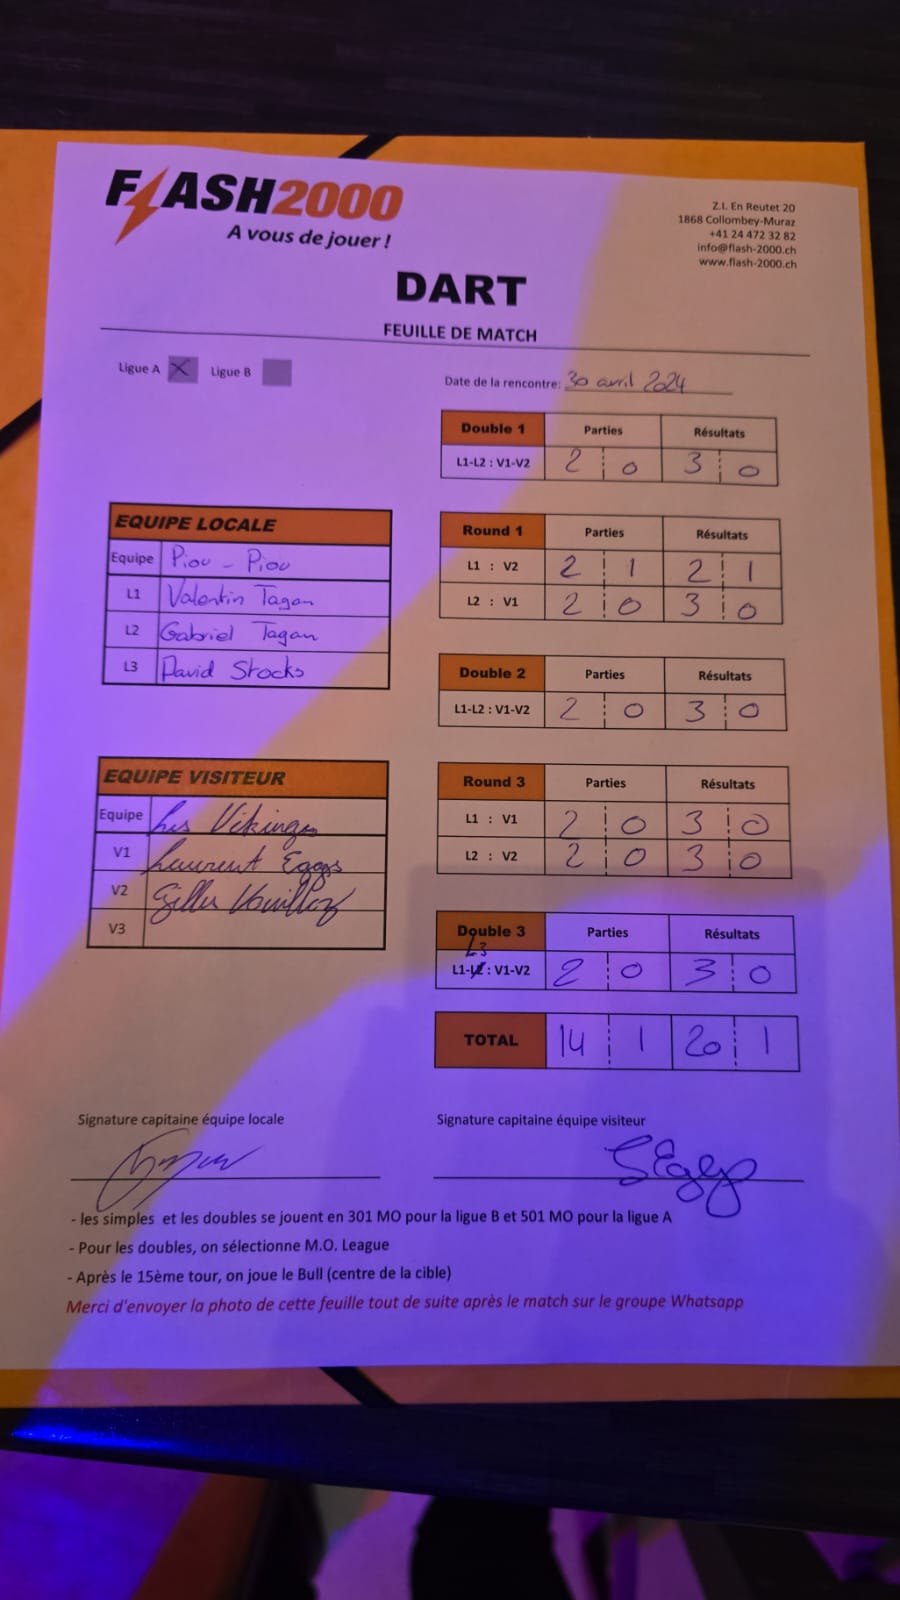 FLASH2000
A vous de jouer !
Z.I. En Reutet 20
1868 Collombey-Muraz
+41 24 472 32 82
info@flash-2000.ch
www.flash-2000.ch
DART
FEUILLE DE MATCH
Ligue A X Ligue B
Date de la rencontre: 30 avril 2024
Double 1 Parties Résultats
L1-L2 : V1-V2 2 0 3 0
EQUIPE LOCALE
Equipe Piou - Piou
L1 Valentin Tagan
L2 Gabriel Tagan
L3 David Stocks
Round 1 Parties Résultats
L1 : V2 2 1 2 1
L2 : V1 2 0 3 0
Double 2 Parties Résultats
L1-L2 : V1-V2 2 0 3 0
EQUIPE VISITEUR
Equipe Les Vikings
V1 Laurent Eggs
V2 Gilles Vouilloz
V3
Round 3 Parties Résultats
L1 : V1 2 0 3 0
L2 : V2 2 0 3 0
Double 3 Parties Résultats
L3
L1-L2 : V1-V2 2 0 3 0
TOTAL 14 1 20 1
Signature capitaine équipe locale
Signature capitaine équipe visiteur
- les simples et les doubles se jouent en 301 MO pour la ligue B et 501 MO pour la ligue A
- Pour les doubles, on sélectionne M.O. League
- Après le 15ème tour, on joue le Bull (centre de la cible)
Merci d'envoyer la photo de cette feuille tout de suite après le match sur le groupe Whatsapp